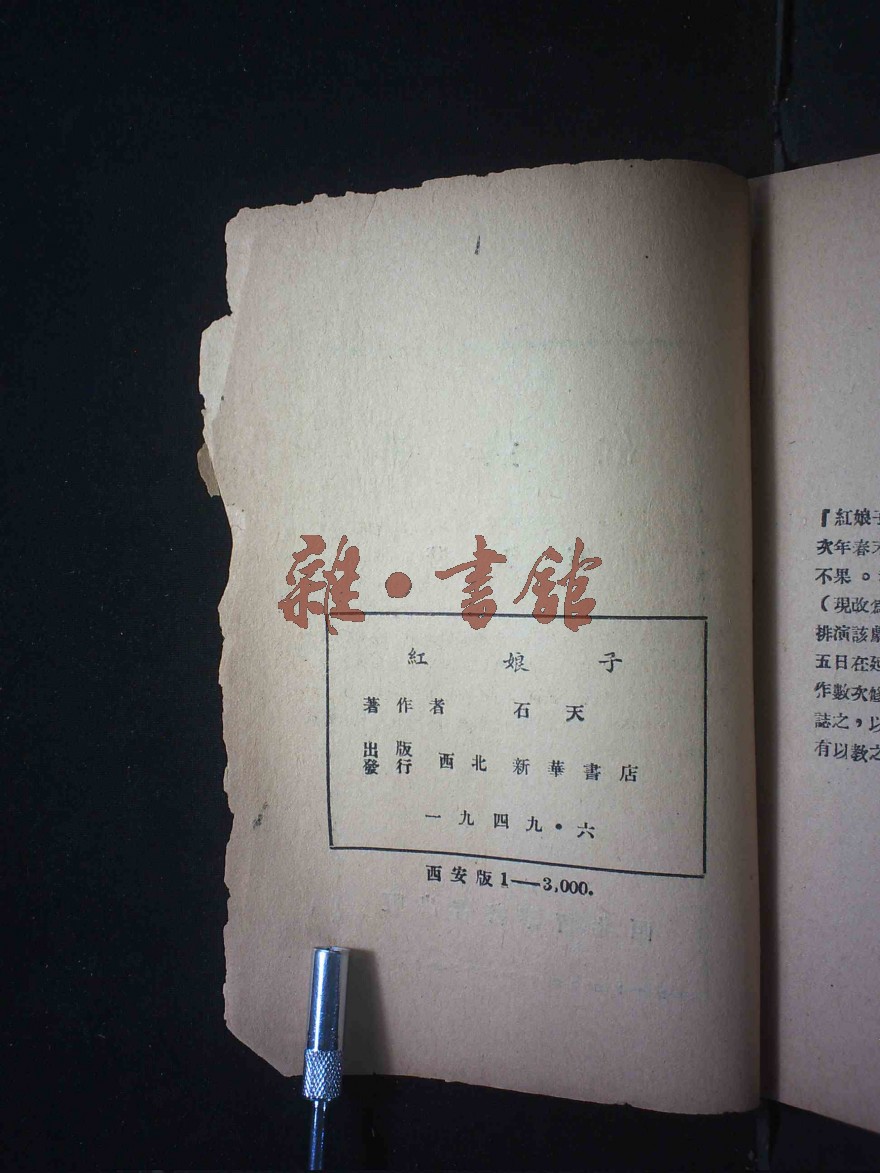 雜·書館
紅娘子
著作者 石天
出版
發行 西北新華書店
一九四九·六
西安版1——3,000.
『紅娘子
次年春末
不果。
(現改為
排演該劇
五日在延
作數次修
誌之,以
有以教之